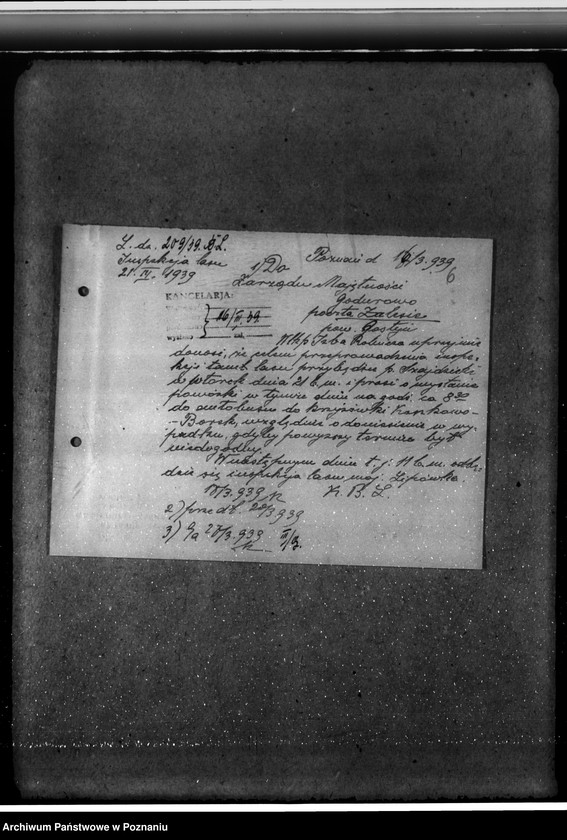 L. dz. 209/39. L.
Inspekcja lasu
21. IV. 1939
Poznań d 16/3. 939
6
1/ Do
Zarządu Majętności
Goderowo
poczta Zalesie
pow. Gostyń
KANCELARJA:
16/III. 39.
Wlkp. Izba Rolnicza uprzejmie
donosi, że celem przeprowadzenia inspe-
kcji tamt. lasu przybędzie p.
we wtorek dnia 21 b. m. i prosi o wysłanie
powózki w tymże dniu na godz. ca 8³⁰
do autobusu do krzyżówki
- Borek, względnie o doniesienie w wy-
padku, gdyby powyższy termin był
niedogodny.
W następnym dniu t. j. b. m. odbę-
dzie się inspekcja lasu maj. Lipówka.
15/3. 939
K. B. L.
2) przedł. 20/3. 939
3) a/a 27/3. 939